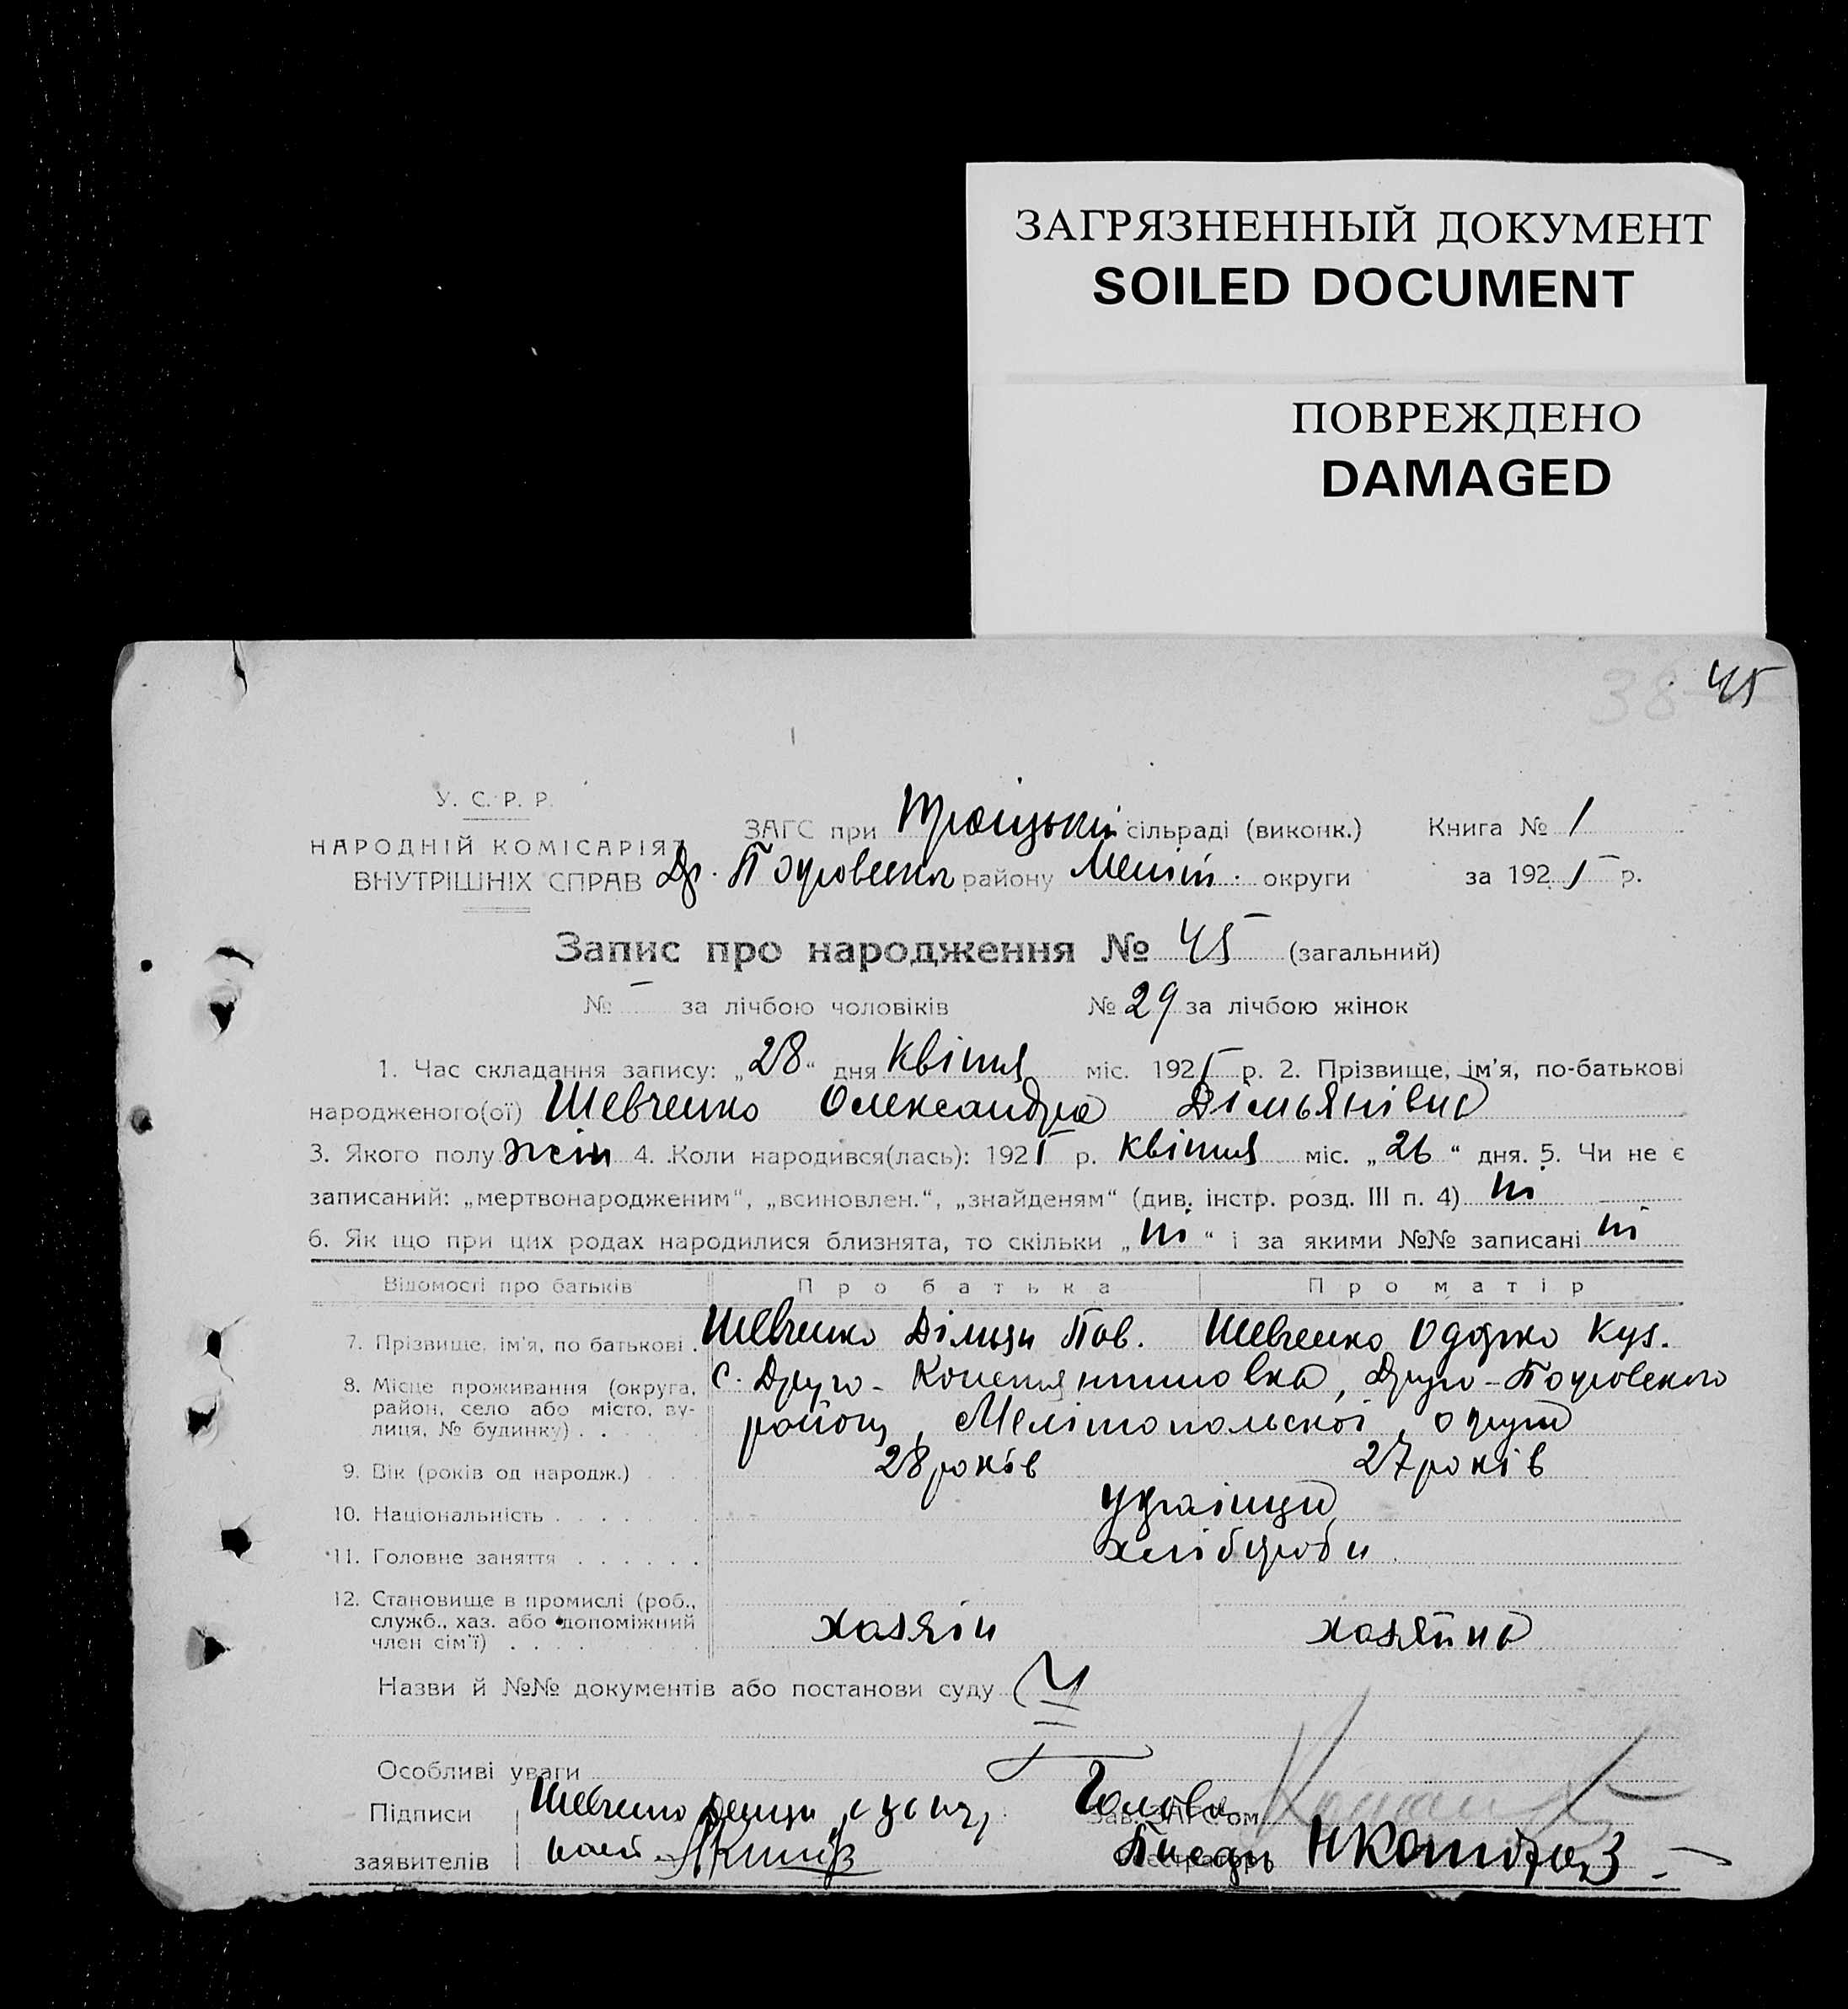 ЗАГРЯЗНЕННЫЙ ДОКУМЕНТ
SOILED DOCUMENT
ПОВРЕЖДЕНО
DAMAGED
38 45
У. С. Р. Р.
НАРОДНІЙ КОМІСАРІЯТ
ВНУТРІШНІХ СПРАВ
ЗАГС при Троїцькій сільраді (виконк.) Книга № 1
Др. Покровського району Меліт. округи за 1925 р.
Запис про народження № 45 (загальний)
№ – за лічбою чоловіків № 29 за лічбою жінок
1. Час складання запису: „28“ дня квітня міс. 1925 р. 2. Прізвище, ім'я, по-батькові
народженого(ої) Шевченко Олександра Дімьянівна
3. Якого полу жін 4. Коли народився(лась): 1925 р. квітня міс. „26“ дня. 5. Чи не є
записаний: „мертвонародженим“, „всиновлен.“, „знайденям“ (див. інстр. розд. III п. 4) ні
6. Як що при цих родах народилися близнята, то скільки „ні“ і за якими №№ записані ні
Відомості про батьків Про батька Про матір
7. Прізвище, ім'я, по батькові . Шевченко Дімян Пав. Шевченко Куз.
8. Місце проживання (округа, район, село або місто, вулиця, № будинку) . . с. Друго-Констянтиновка, Друго-Покровского
району, Мелітопольскої округи
9. Вік (років од народж.) . . . 28 років 27 років
10. Національність . . . . . . українци
11. Головне заняття . . . . . . хлібороби
12. Становище в промислі (роб., служб., хаз. або допоміжний член сім'ї) . . . . хазяїн хазяйка
Назви й №№ документів або постанови суду
Особливі уваги
Підписи Шевченко Голова
Зав. ЗАГС'ом
заявителів
Реєстратор